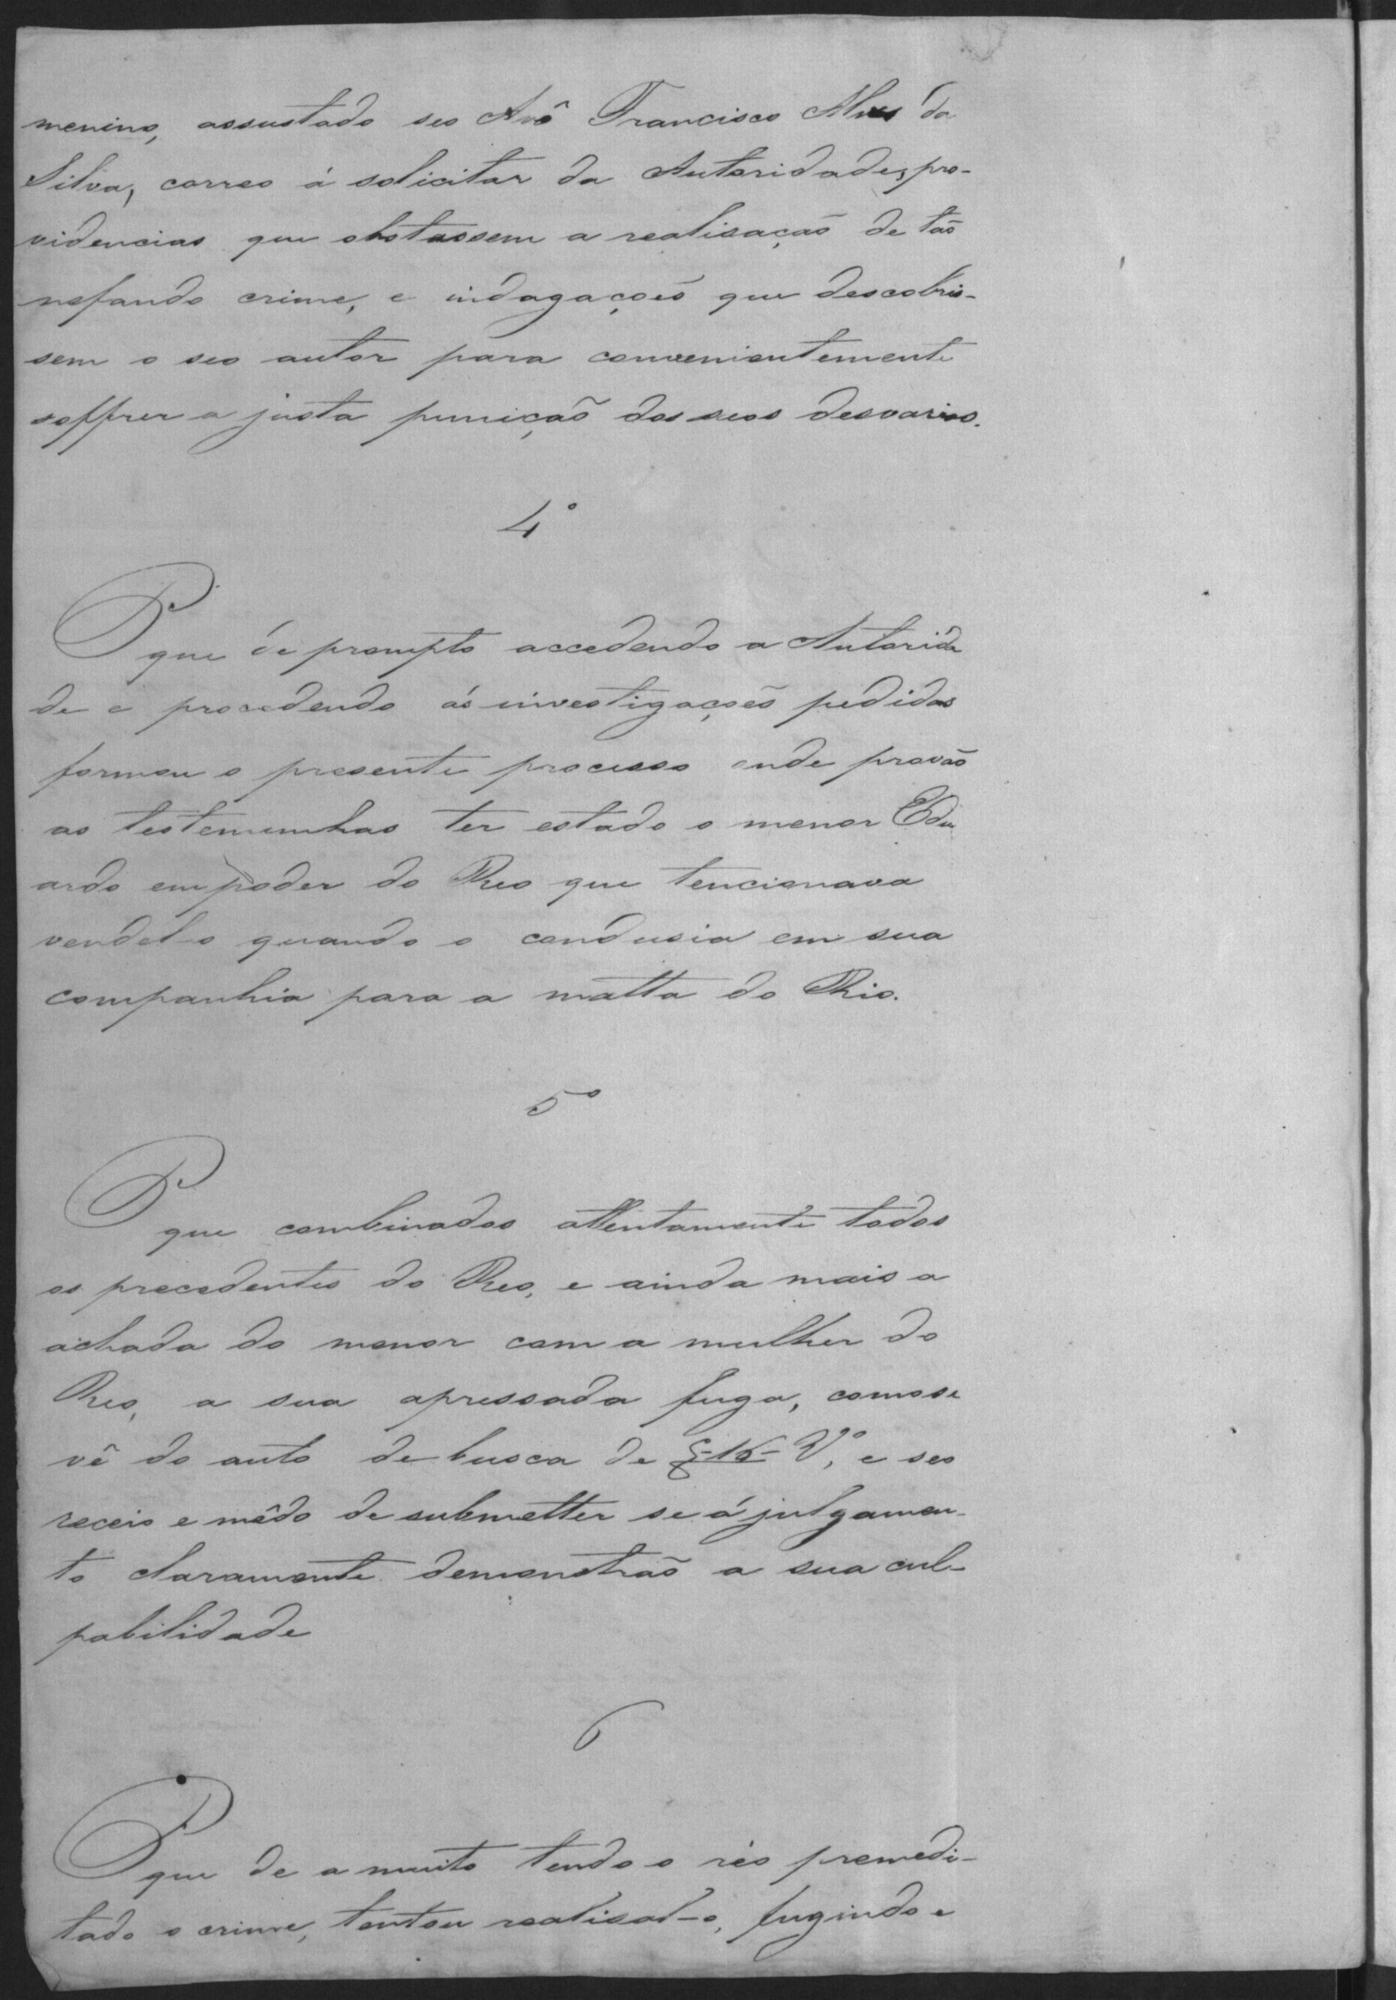 menino, assustado seo Avô Francisco Alves da
Silva, correo á solicitar da Autoridade, pro-
videncias que obstassem a realisação de tão
nefando crime, e indagaçoẽs que descobris-
sem o seo autor para convenientemente
soffrer a justa punição dos seos desvarios.
4º
P que de prompto accedendo a Autorida
de e procedendo ás investigaçoẽs pedidas
formou o presente processo onde provão
as testemunhas ter estado o menor Edu
ardo em poder do Reo que tencionava
vendel-o quando o condusia em sua
companhia para a matta do Rio.
5º
P que combinados attentamente todos
os precedentes do Reo, e ainda mais a
achada do menor com a mulher do
Reo, a sua apressada fuga, como se
vê do auto de busca de f-16- Vº, e seo
receio e mêdo de submetter se á julgamen-
to claramente demonstrão a sua cul-
pabilidade
6
P que de a muito tendo o réo premedi-
tado o crime, tentou realisal-o, fugindo e